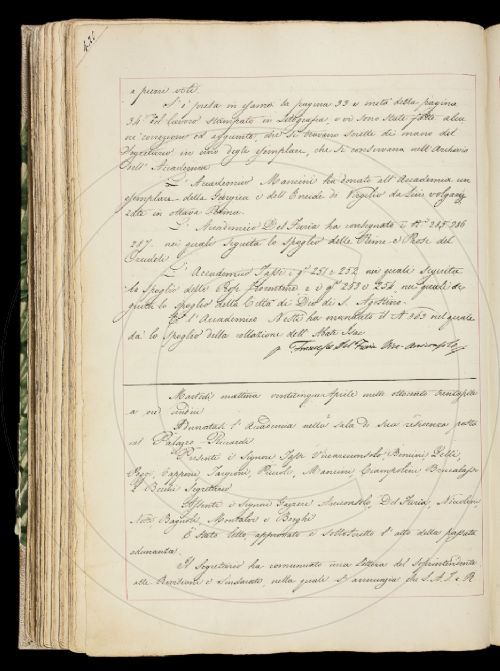 a pieni voti.
S'è presa in esame la pagina 33 e metà della pagina
34 del lavoro stampato in Litografia, e vi sono state fatte alcu
ne correzioni ed aggiunte, che si trovano scritte di mano del
Segretario in uno degli esemplari, che si conservano nell'Archivio
dell'Accademia.
L'Accademico Mancini ha donato all'Accademia un
esemplare della Georgica e dell'Eneide di Virgilio da lui volgariz
zate in ottava Rima.
L'Accademico Del Furia ha consegnato i N.i 285. 286
287. nei quali seguita lo spoglio delle Rime e Prose del
L'Accademico Tassi i q.i 251 e 252 nei quali seguita
lo spoglio delle Prose Fiorentine e i q.i 253 e 254 nei quali se
guita lo spoglio della Città di Dio di S. Agostino.
E l'Accademico Nesti ha mandato il N. 363 nel quale
dà lo spoglio della collazione dell'Abate Isac
Francesco Del Furia
Martedì mattina Aprile mille ottocento trentasette
a ore undici
Adunatasi l'Accademia nella sala di sua residenza posta
nel Palazzo Riccardi
Presenti i Signori Tassi Vicearciconsolo Benvenuti Zelli,
Pappone Targioni, Mancini Ciampolini Bencalassi
e Becchi Segretario
Assenti i Signori Gazzeri Arciconsolo, Del Furia, Niccolini
Nesti Bagnoli, Montalvi e Borghi
È stato letto, approvato e sottoscritto l'atto della passata
adunanza.
Il Segretario ha comunicato una Lettera del Soprintendente
alle Revisioni e Sindacati, nella quale si annunzia che S. A. I. e R.